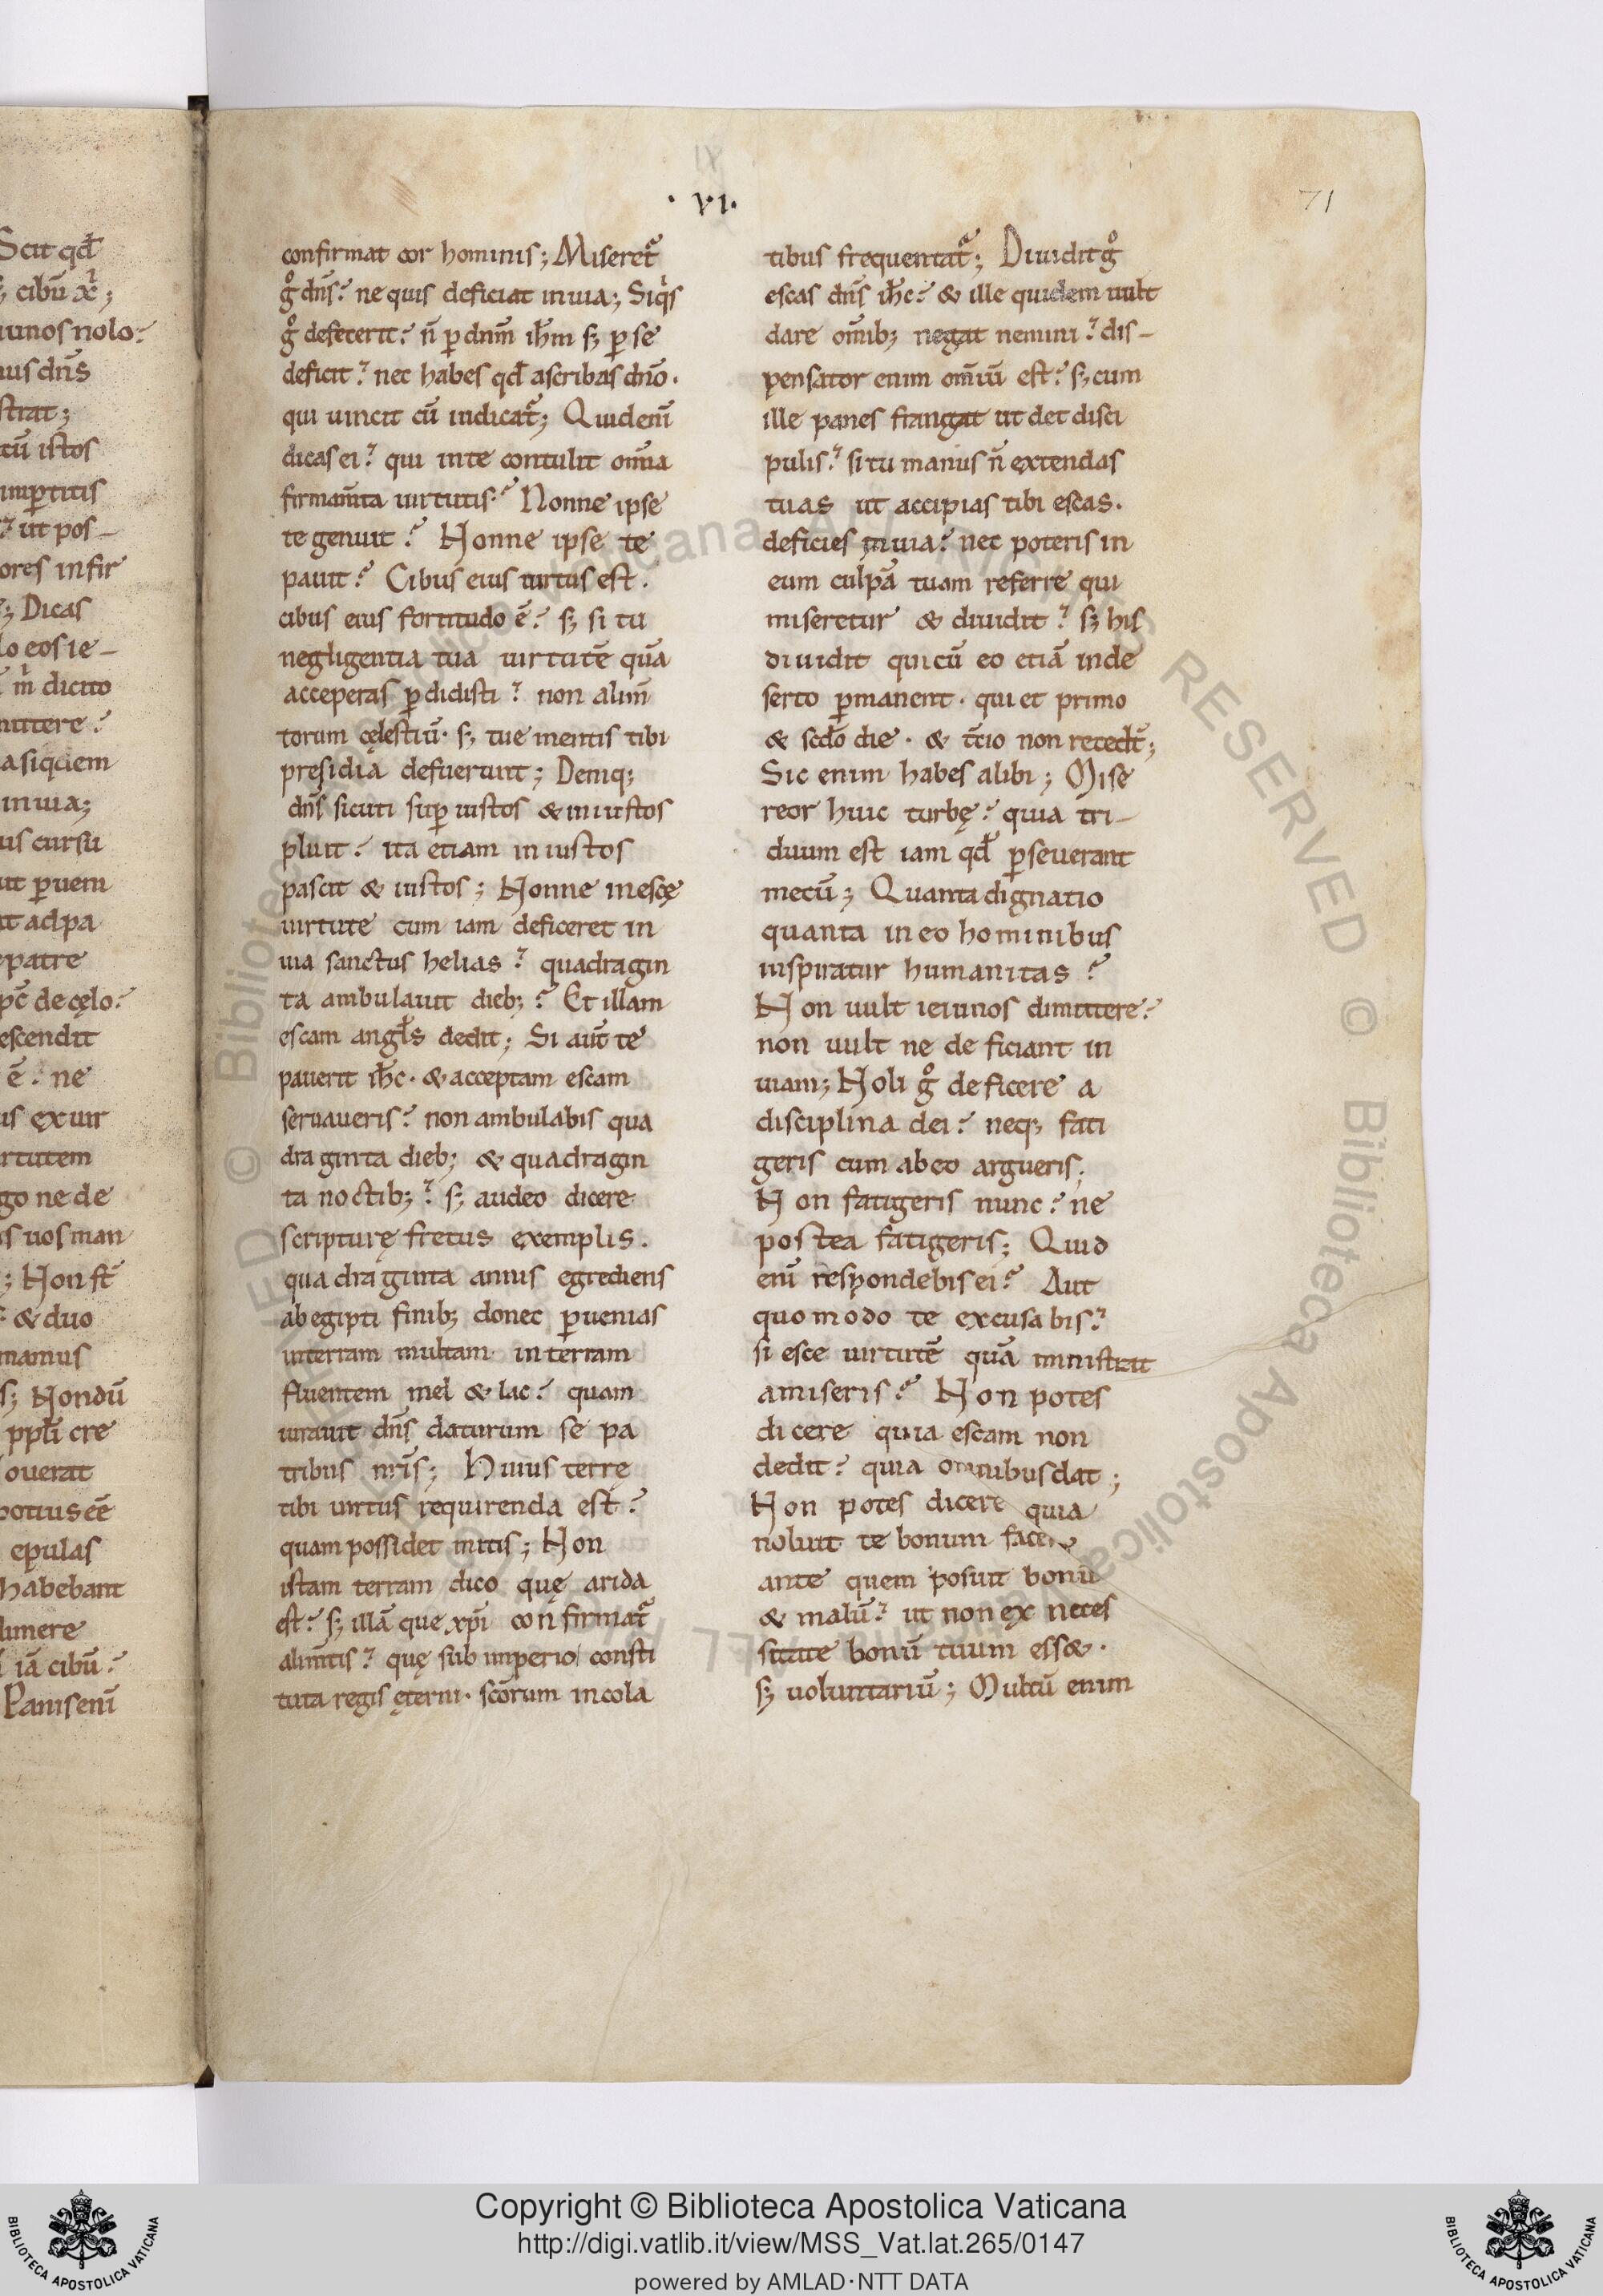 IX
· VI ·
71
Scit qđ
; cibū
iunos nolo?
ius dn̄s
strat;
tū istos
imꝑtitis
? ut pos-
ores infir
; Dicas
lo eos ie-
m̄ dicito
mittere?
a siquiem
in uia;
us cursu
ut ꝑuem
it ad pa
patre
de cęlo?
escendit
ē. ne
us ex uir
rtutem
go ne de
s uos man
; Non st̄
& duo
manus
s; Nondū
ppl̄i cre
ouerat
potius eē
epulas
habebant
umere
iā cibū?
Panis enī
confirmat cor hominis; Miseret᷑
gͦ dn̄s? ne quis deficiat in uia; Siqͥs
gͦ defecerit? n̄ ꝑ dn̄m ih̄m sꝫ ꝑ se
deficit? nec habes qđ ascribas dn̄o.
qui uincit cū iudicat᷑; Quid enī
dicas ei? qui in te contulit om̄ia
firmam̄ta uirtutis? Nonne ipse
te genuit? Nonne ipse te
pauit? Cibus eius uirtus est.
cibus eius fortitudo ē? sꝫ si tu
negligentia tua uirtutē quā
acceperas ꝑdidisti? non alim̄
torum cęlestiū. sꝫ tue mentis tibi
presidia defuerunt; Deniqꝫ
dn̄s sicuti suꝑ iustos & iniustos
pluit? ita etiam iniustos
pascit & iustos; Nonne in escę
uirtute cum iam deficeret in
uia sanctus helias? quadragin
ta ambulauit diebꝫ? Et illam
escam angl̄s dedit; Si aut̄ te
pauerit ih̄c. & acceptam escam
seruaueris? non ambulabis qua
draginta diebꝫ & quadragin
ta noctibꝫ? sꝫ audeo dicere
scripturę fretus exemplis.
quadraginta annis egrediens
ab egipti finibꝫ donec ꝑuenias
in terram multam in terram
fluentem mel & lac? quam
iurauit dn̄s daturum se pa
tribus nr̄is; Huius terrę
tibi uirtus requirenda est?
quam possidet mitis; Non
istam terram dico quę arida
est? sꝫ illā que xp̄i confirmat᷑
alim̄tis? quę sub imperio consti
tuta regis ęterni. scōrum incola
tibus frequentat᷑; Diuidit gͦ
escas dn̄s ih̄c? & ille quidem uult
dare om̄ibꝫ negat nemini? dis-
pensator enim om̄iū est? sꝫ cum
ille panes frangat ut det disci
pulis? si tu manus n̄ extendas
tuas ut accipias tibi escas.
deficies in uia? nec poteris in
eum culpā tuam referre qui
miseretur & diuidit? sꝫ his
diuidit qui cū eo etiā in de
serto ꝑmanent. qui et primo
& scd̄o die. & t̄cio non recedt̄;
Sic enim habes alibi; Mise
reor huic turbę? quia tri-
duum est iam qđ ꝑseuerant
mecū; Quanta dignatio
quanta in eo hominibus
inspiratur humanitas?
Non uult ieiunos dimittere?
non uult ne deficiant in
uiam; Noli gͦ deficere a
disciplina dei? neqꝫ fati
geris cum ab eo argueris;
Non fatigeris nunc? ne
postea fatigeris; Quid
enī respondebis ei? Aut
quomodo te excusabis?
si esce uirtutē quā ministrat
amiseris? Non potes
dicere quia escam non
dedit? quia omnibus dat;
Non potes dicere quia
noluit te bonum facere
ante quem posuit bonū
& malū? ut non ex neces
sitate bonū tuum ess&.
sꝫ uoluntariū; Multū enim
Copyright © Biblioteca Apostolica Vaticana
http://digi.vatlib.it/view/MSS_Vat.lat.265/0147
powered by AMLAD·NTT DATA
BIBLIOTECA APOSTOLICA VATICANA
BIBLIOTECA APOSTOLICA VATICANA